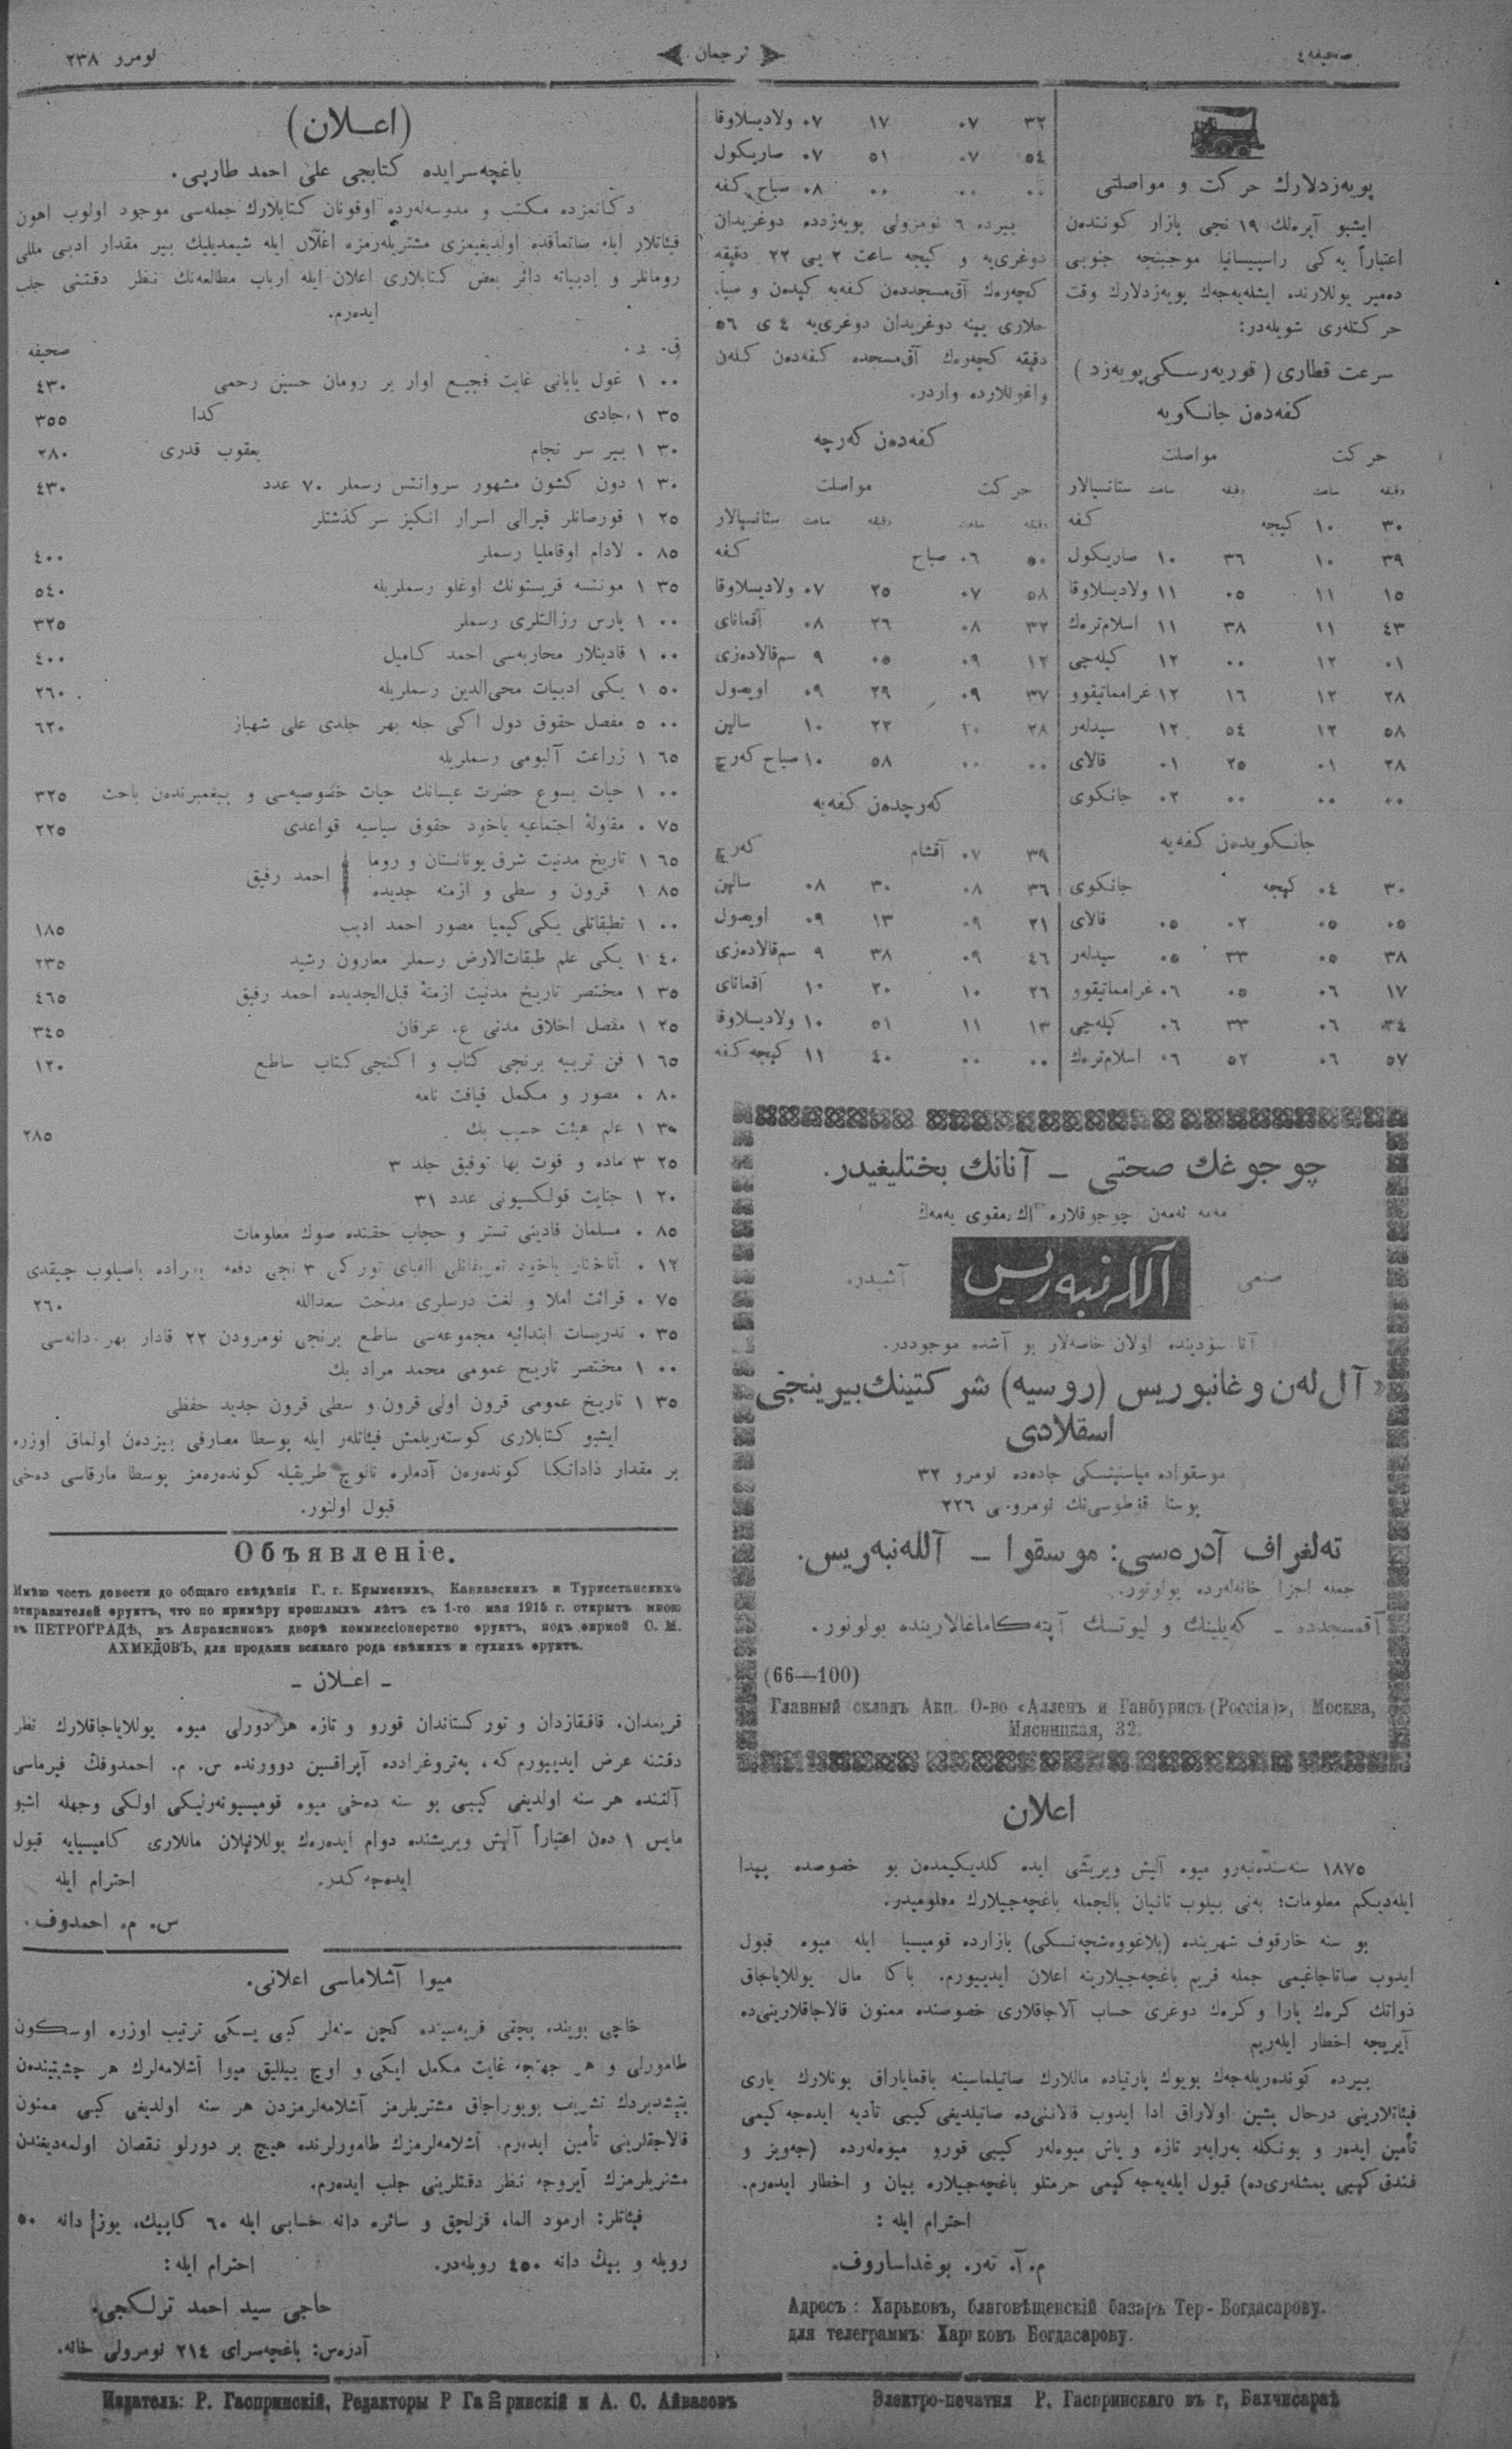 صحیفه ٤
ترجمان
نومرو ٢٣٨
پویه‌زدلارك حركت و مواصلتی
ایشبو آیره‌لك ١٩ نجی بازار كوننده‌ن
اعتباراً یه‌كی راسپیسانیا موجبنجه جنوبی
ده‌میر یوللارنده ایشله‌یه‌جه‌ك پویه‌زدلارك وقت
حركتله‌ری شویله‌در:
سرعت قطاری (قوریه‌رسكی پویه‌زد)
كفه‌ده‌ن جانكویه
حركت مواصلت
دقیقه ساعت دقیقه ساعت ستانسیالار
٣٠ ١٠ كیجه كفه
٣٩ ١٠ ٣٦ ١٠ صاریكول
١٥ ١١ ٠٥ ١١ ولادیسلاوقا
٤٣ ١١ ٣٨ ١١ اسلام‌تره‌ك
٠١ ١٢ ٠٠ ١٢ كیله‌جی
٢٨ ١٢ ١٦ ١٢ غرامماتیقوو
٥٨ ١٢ ٥٤ ١٢ سیدله‌ر
٢٨ ٠١ ٢٥ ٠١ قالای
٠٠ ٠٠ ٠٠ ٠٢ جانكوی
جانكویده‌ن كفه‌یه
٣٠ ٠٤ كیجه جانكوی
٠٥ ٠٥ ٠٢ ٠٥ قالای
٣٨ ٠٥ ٣٣ ٠٥ سیدله‌ر
١٧ ٠٦ ٠٥ ٠٦ غرامماتیقوو
٣٤ ٠٦ ٣٣ ٠٦ كیله‌جی
٥٧ ٠٦ ٥٢ ٠٦ اسلام‌تره‌ك
٣٢ ٠٧ ١٧ ٠٧ ولادیسلاوقا
٥٤ ٠٧ ٥١ ٠٧ صاریكول
٠٠ ٠٠ ٠٠ ٠٨ صباح كفه
بیرده ٦ نومرولی پویه‌زدده دوغریدان
دوغری‌یه و كیجه ساعت ٢ یی ٢٢ دقیقه
كچه‌ره‌ك آق‌مسجدده‌ن كفه‌یه كیده‌ن و صبا.
حلاری یینه دوغریدان دوغری‌یه ٤ ی ٥٦
دقیقه كچه‌ره‌ك آق‌مسجده كفه‌ده‌ن كله‌ن
واغونلارده واردر.
كفه‌ده‌ن كه‌رچه
حركت مواصلت
دقیقه ساعت دقیقه ساعت ستانسیالار
٥٠ ٠٦ صباح كفه
٥٨ ٠٧ ٢٥ ٠٧ ولادیسلاوقا
٣٢ ٠٨ ٢٦ ٠٨ آقمانای
١٢ ٠٩ ٠٥ ٩ سم‌قالاده‌زی
٣٧ ٠٩ ٢٩ ٠٩ اویصول
٢٨ ١٠ ٢٢ ١٠ سالین
٠٠ ٠٠ ٥٨ ١٠ صباح كه‌رچ
كه‌رچده‌ن كفه‌یه
٣٩ ٠٧ آقشام كه‌رچ
٣٦ ٠٨ ٣٠ ٠٨ سالین
٢١ ٠٩ ١٣ ٠٩ اویصول
٤٦ ٠٩ ٣٨ ٩ سم‌قالاده‌زی
٢٦ ١٠ ٢٠ ١٠ آقمانای
١٣ ١١ ٥١ ١٠ ولادیسلاوقا
٠٠ ٠٠ ٤٠ ١١ كیجه كفه
چوجوغك صحتی – آنانك بختلیغیدر.
مه‌مه ئه‌مه‌ن چوجوقلاره اك مقوی یه‌مه‌ك
صنعی آلله‌نبه‌ریس آشیدر.
آنا سودینده اولان خاصه‌لار بو آشده موجوددر.
«آل‌له‌ن وغانبوریس (روسیه) شركتینك بیرینجی
اسقلادی
موسقواده میاسنیتسكی جاده‌ده نومرو ٣٢
پوستا قوطوسی‌نك نومرو‌سی ٢٢٦
ته‌لغراف آدره‌سی: موسقوا – آلله‌نبه‌ریس.
جمله اجزا خانه‌له‌رده بولونور.
آقمسجدده – كه‌یلینك و لیوتسك آپته‌كاماغالارینده بولونور.
(66—100)
Главный складъ Акц. О-во «Алленъ и Ганбурисъ (Россія)», Москва,
Мясницкая, 32.
اعلان
١٨٧٥ سنه‌سنده‌نبه‌رو میوه آلیش ویریشی ایده كلدیكیمده‌ن بو خصوصده پیدا
ایله‌دیكم معلومات؛ به‌نی بیلوب تانیان بالجمله باغچه‌جیلارك معلومیدر.
بو سنه خارقوف شهرینده (بلاغووه‌شچه‌نسكی) بازارده قومیسیا ایله میوه قبول
ایدوب صاتاجاغیمی جمله قریم باغچه‌جیلارینه اعلان ایدییورم. باكا مال یوللایاجاق
ذواتك كره‌ك پارا و كره‌ك دوغری حساب آلاجاقلاری خصوصنده ممنون قالاجاقلارینی‌ده
آیریجه اخطار ایله‌ریم
بیرده كونده‌ریله‌جه‌ك بویوك پارتیاده ماللارك صاتیلماسینه باقمایاراق بونلارك یاری
فیئاتلارینی درحال پشین اولاراق ادا ایدوب قالاننی‌ده صاتیلدیغی كیبی تأدیه ایده‌جه‌كیمی
تأمین ایده‌ر و بونكله به‌رابه‌ر تازه و یاش میوه‌له‌ر كیبی قورو میوه‌له‌رده (جه‌ویز و
فندق كیبی یمشله‌ری‌ده) قبول ایله‌یه‌جه‌كیمی حرمتلو باغچه‌جیلاره بیان و اخطار ایده‌رم.
احترام ایله:
م. آ. ته‌ر. بوغداساروف.
Адресъ: Харьковъ, благовѣщенскій базаръ Тер-Богдасарову.
для телеграммъ: Харьковъ Богдасарову.
(اعلان)
باغچه‌سرایده كتابجی علی احمد طارپی.
دكانمزده مكتب و مدرسه‌له‌رده اوقونان كتابلارك جمله‌سی موجود اولوب اهون
فیئاتلار ایله صاتماقده اولدیغیمزی مشتریله‌رمزه اعلان ایله شیمدیلیك بیر مقدار ادبی مللی
رومانلر و ادبیاته دائر بعض كتابلاری اعلان ایله ارباب مطالعه‌نك نظر دقتنی جلب
ایده‌رم.
ق. ر. صحیفه
٠٠ ١ غول یابانی غایت فجیع اوار بر رومان حسین رحمی ٤٣٠
٣٥ ١ جادی كذا ٣٥٥
٣٠ ١ بیر سر نجام یعقوب قدری ٢٨٠
٣٠ ١ دون كشون مشهور سروانتس رسملر ٧٠ عدد ٤٣٠
٢٥ ١ قورصانلر قیرالی اسرار انكیز سركذشتلر
٨٥ ٠ لادام اوقاملیا رسملر ٤٠٠
٣٥ ١ مونتسه قریستونك اوغلو رسملریله ٥٤٠
٠٠ ١ پارس رزالتلری رسملر ٣٢٥
٠٠ ١ قادینلار محاربه‌سی احمد كامیل ٤٠٠
٥٠ ١ یكی ادبیات محی‌الدین رسملریله ٢٦٠
٠٠ ٥ مفصل حقوق دول اكی جله بهر جلدی علی شهباز ٦٢٠
٦٥ ١ زراعت آلبومی رسملریله
٠٠ ١ حیات یسوع حضرت عیسانك حیات خصوصیه‌سی و پیغمبرنده‌ن باحث ٣٢٥
٧٥ ٠ مقاولهٔ اجتماعیه یاخود حقوق سیاسیه قواعدی ٢٢٥
٦٥ ١ تاریخ مدنیت شرق یونانستان و روما
٨٥ ١ قرون و سطی و ازمنه جدیده احمد رفیق
٠٠ ١ تطبقاتلی یكی كیمیا مصور احمد ادیب ١٨٥
٤٠ ١ یكی علم طبقات‌الارض رسملر معارون رشید ٢٣٥
٣٥ ١ مختصر تاریخ مدنیت ازمنهٔ قبل‌الجدیده احمد رفیق ٤٦٥
٢٥ ١ مفصل اخلاق مدنی ع. عرفان ٣٤٥
٦٥ ١ فن تربیه برنجی كتاب و اكنجی كتاب ساطع ١٢٠
٨٠ ٠ مصور و مكمل قیافت نامه
٣٥ ١ علم هیئت حسیب بك ٢٨٥
٢٥ ٣ ماده و قوت بها توفیق جلد ٣
٢٠ ١ جنایت قولكسیونی عدد ٣١
٨٥ ٠ مسلمان قادینی تستر و حجاب حقنده صوك معلومات
١٢ ٠ یاخود الفبای توركی ٣ نجی دفعه باصیلوب چیقدی
٧٥ ٠ قرائت املا و لغت درسلری مدحت سعدالله ٢٦٠
٣٥ ٠ تدریسات ابتدائیه مجموعه‌سی ساطع برنجی نومرودن ٢٢ قادار بهر دانه‌سی
٠٠ ١ مختصر تاریخ عمومی محمد مراد بك
٣٥ ١ تاریخ عمومی قرون اولی قرون و سطی قرون جدید حفظی
ایشبو كتابلاری كوسته‌ریلمش فیئاتله‌ر ایله پوسطا مصارفی بیزده‌ن اولماق اوزره
بر مقدار ذاداتكا كونده‌ره‌ن آدمله‌ره نالوج طریقیله كونده‌ره‌مز پوسطا مارقاسی ده‌خی
قبول اولنور.
Объявленіе.
Имѣю честь довести до общаго свѣдѣнія Г. г. Крымскихъ, Кавказскихъ и Туркестанскихъ
отправителей фруктъ, что по примѣру прошлыхъ лѣтъ съ 1-го мая 1915 г. открытъ мною
въ ПЕТРОГРАДѢ, въ Апраксиномъ дворѣ коммиссіонерство фруктъ, подъ фирмой С. М.
АХМЕДОВЪ, для продажи всякаго рода свѣжихъ и сухихъ фруктъ.
– اعلان –
قریمدان، قافقازدان و توركستاندان قورو و تازه هر دورلی میوه یوللایاجاقلارك نظر
دقتنه عرض ایدییورم كه، په‌تروغرادده آپراقسین دوورنده س. م. احمدوفك فیرماسی
آلتنده هر سنه اولدیغی كیبی بو سنه ده‌خی میوه قومیسیونه‌رلیكی اولكی وجهله اشبو
مایس ١ ده‌ن اعتباراً آلیش ویریشنده دوام ایده‌ره‌ك یوللانیلان ماللاری كامیسیایه قبول
ایده‌جه‌كدر. احترام ایله
س. م. احمدوف.
میوا آشلاماسی اعلانی.
خاچی بوینده پچقی قریه‌سینده كچن سنه‌لر كبی یسكی ترتیب اوزره اوسكون
طامورلی و هر جهتجه غایت مكمل ایكی و اوچ ییللیق میوا آشلامه‌لرك هر چشیتینده‌ن
یتیشدیردك تشریف بویوراجاق مشتریلرمز آشلامه‌لرمزدن هر سنه اولدیغی كبی ممنون
قالاجقلرینی تأمین ایده‌رم. آشلامه‌لرمزك طامورلرنده هیچ بر دورلو نقصان اولمه‌دیغندن
مشتریلرمزك آیروجه نظر دقتلرینی جلب ایده‌رم.
فیئاتلر: ارمود الما، قزلجق و سائره دانه حسابی ایله ٦٠ كاپیك، یوز دانه ٥٠
روبله و بیڭ دانه ٤٥٠ روبله‌در. احترام ایله:
حاجی سید احمد ترلكجی.
آدره‌س: باغچه‌سرای ٢١٤ نومرولی خانه.
Издатель: Р. Гаспринскій, Редакторы Р Гаспринскій и А. С. Айвазовъ
Электро-печатня Р. Гаспринскаго въ г, Бахчисараѣ